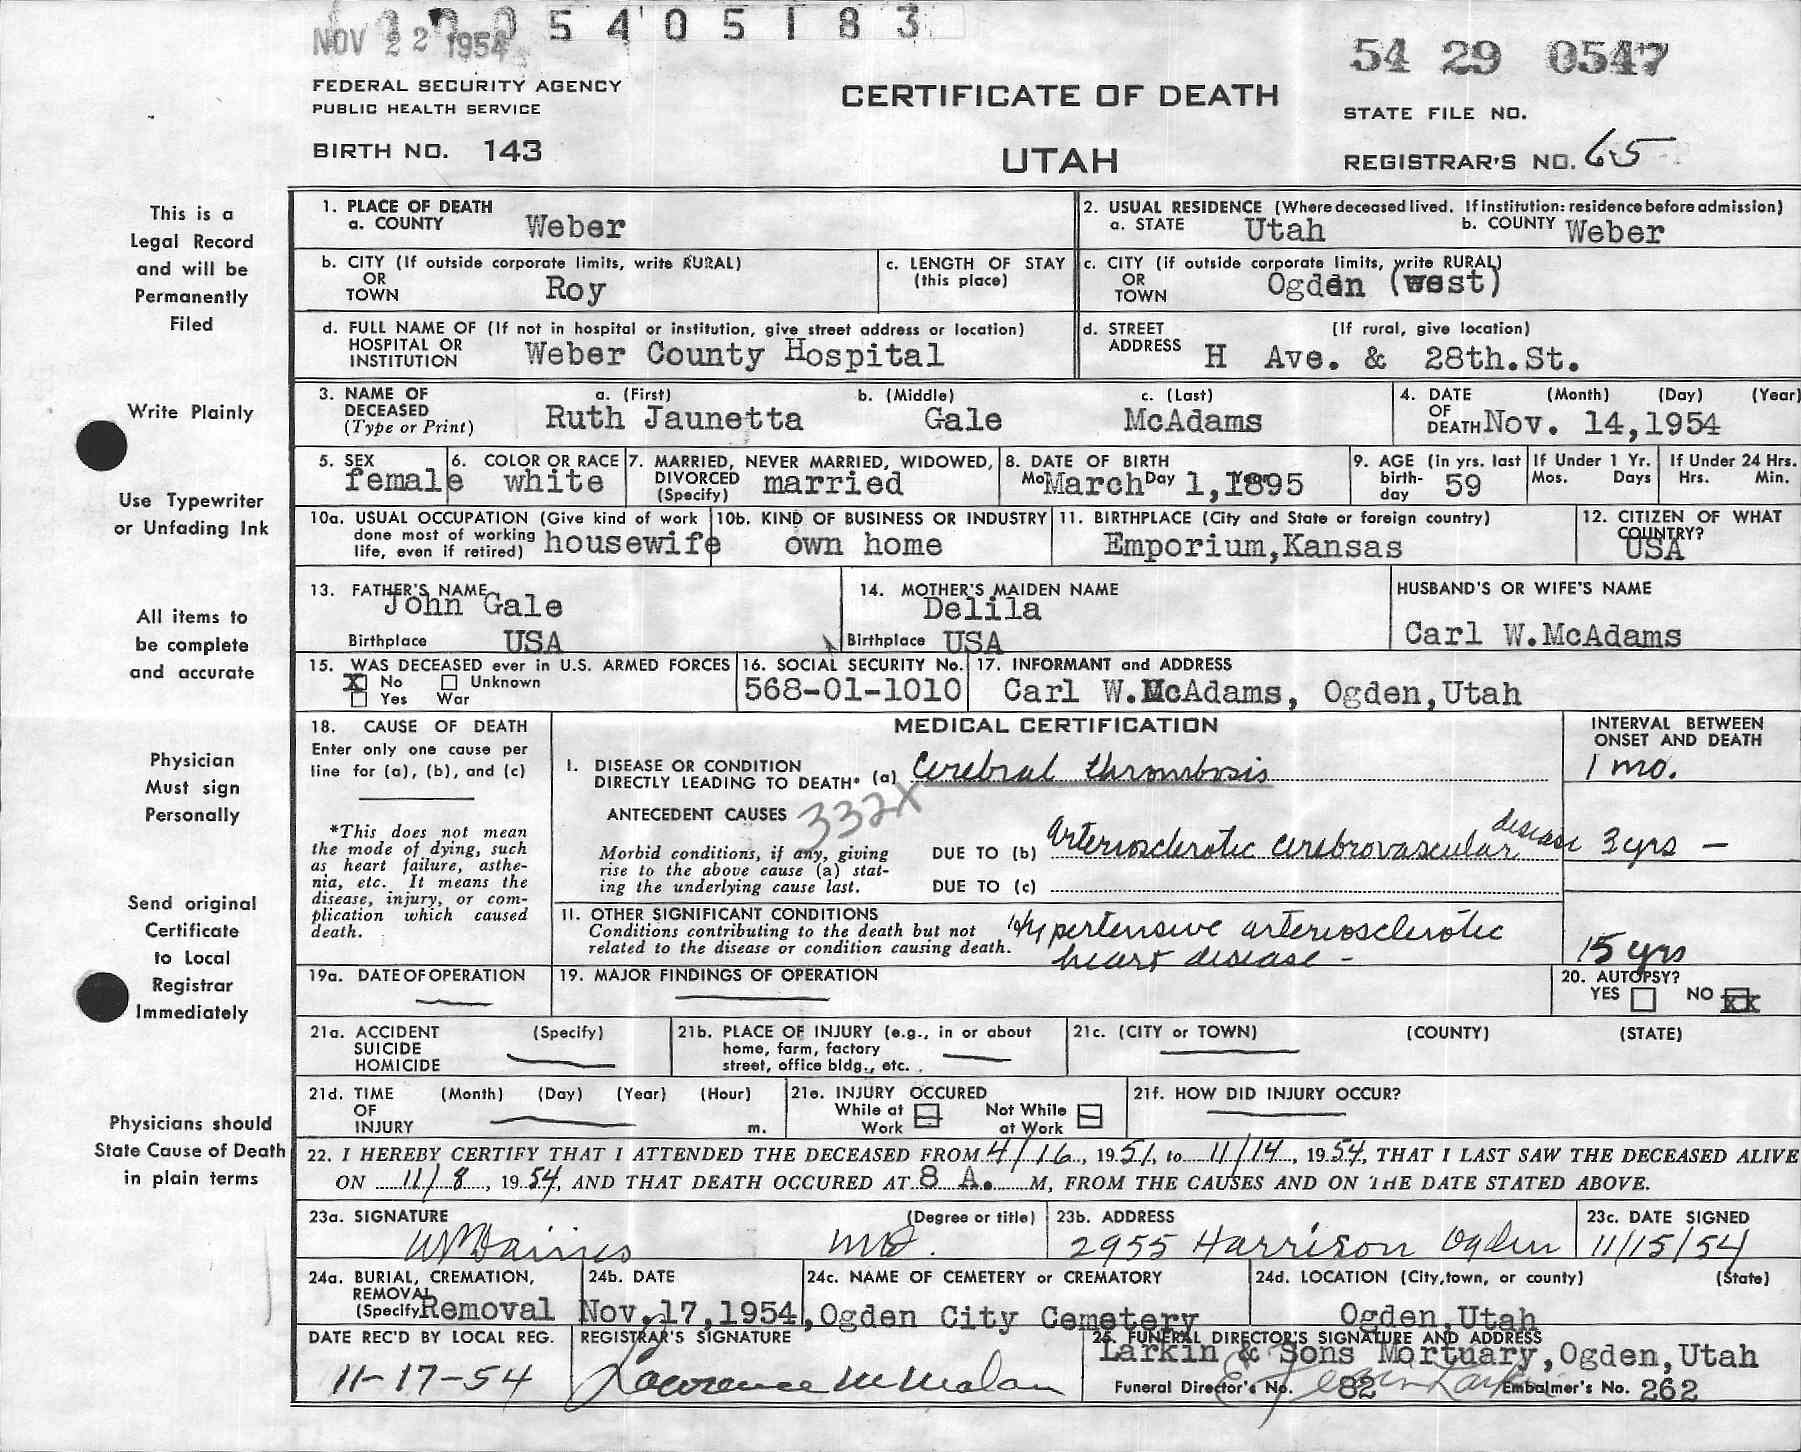 NOV 22 1954 5 4 0 5 1 8 3
54 29 0547
FEDERAL SECURITY AGENCY
PUBLIC HEALTH SERVICE
CERTIFICATE OF DEATH
STATE FILE NO.
BIRTH NO. 143
UTAH
REGISTRAR'S NO. 65
This is a
Legal Record
and will be
Permanently
Filed
Write Plainly
Use Typewriter
or Unfading Ink
All items to
be complete
and accurate
Physician
Must sign
Personally
Send original
Certificate
to Local
Registrar
Immediately
Physicians should
State Cause of Death
in plain terms
1. PLACE OF DEATH
a. COUNTY Weber
2. USUAL RESIDENCE (Where deceased lived. If institution: residence before admission)
a. STATE Utah b. COUNTY Weber
b. CITY (If outside corporate limits, write RURAL)
OR
TOWN Roy
c. LENGTH OF STAY
(this place)
c. CITY (if outside corporate limits, write RURAL)
OR
TOWN Ogden (west)
d. FULL NAME OF (If not in hospital or institution, give street address or location)
HOSPITAL OR
INSTITUTION Weber County Hospital
d. STREET (If rural, give location)
ADDRESS H Ave. & 28th.St.
3. NAME OF a. (First) b. (Middle) c. (Last)
DECEASED
(Type or Print) Ruth Jaunetta Gale McAdams
4. DATE (Month) (Day) (Year)
OF
DEATH Nov. 14,1954
5. SEX
female
6. COLOR OR RACE
white
7. MARRIED, NEVER MARRIED, WIDOWED,
DIVORCED
(Specify) married
8. DATE OF BIRTH
Mo March Day 1,1895
9. AGE (in yrs. last
birth-
day 59
If Under 1 Yr.
Mos. Days
If Under 24 Hrs.
Hrs. Min.
10a. USUAL OCCUPATION (Give kind of work
done most of working
life, even if retired) housewife
10b. KIND OF BUSINESS OR INDUSTRY
own home
11. BIRTHPLACE (City and State or foreign country)
Emporium,Kansas
12. CITIZEN OF WHAT
COUNTRY?
USA
13. FATHER'S NAME
John Gale
Birthplace USA
14. MOTHER'S MAIDEN NAME
Delila
Birthplace USA
HUSBAND'S OR WIFE'S NAME
Carl W.McAdams
15. WAS DECEASED ever in U.S. ARMED FORCES
X No Unknown
Yes War
16. SOCIAL SECURITY No.
568-01-1010
17. INFORMANT and ADDRESS
Carl W.McAdams, Ogden,Utah
18. CAUSE OF DEATH
Enter only one cause per
line for (a), (b), and (c)
*This does not mean
the mode of dying, such
as heart failure, asthe-
nia, etc. It means the
disease, injury, or com-
plication which caused
death.
MEDICAL CERTIFICATION
INTERVAL BETWEEN
ONSET AND DEATH
I. DISEASE OR CONDITION
DIRECTLY LEADING TO DEATH* (a) Cerebral thrombosis 1 mo.
ANTECEDENT CAUSES 332X
Morbid conditions, if any, giving
rise to the above cause (a) stat-
ing the underlying cause last.
DUE TO (b) Arteriosclerotic cerebrovascular disease 3 yrs —
DUE TO (c)
II. OTHER SIGNIFICANT CONDITIONS
Conditions contributing to the death but not
related to the disease or condition causing death.
Hypertensive arteriosclerotic
heart disease – 15 yrs
19a. DATE OF OPERATION
19. MAJOR FINDINGS OF OPERATION
20. AUTOPSY?
YES NO XX
21a. ACCIDENT (Specify)
SUICIDE
HOMICIDE
21b. PLACE OF INJURY (e.g., in or about
home, farm, factory
street, office bldg., etc.
21c. (CITY or TOWN) (COUNTY) (STATE)
21d. TIME (Month) (Day) (Year) (Hour)
OF
INJURY m.
21e. INJURY OCCURED
While at Not While
Work at Work
21f. HOW DID INJURY OCCUR?
22. I HEREBY CERTIFY THAT I ATTENDED THE DECEASED FROM 4/16, 1951, to 11/14, 1954, THAT I LAST SAW THE DECEASED ALIVE
ON 11/8, 1954, AND THAT DEATH OCCURED AT 8 A. M, FROM THE CAUSES AND ON THE DATE STATED ABOVE.
23a. SIGNATURE (Degree or title)
Daines MD.
23b. ADDRESS
2955 Harrison Ogden
23c. DATE SIGNED
11/15/54
24a. BURIAL, CREMATION,
REMOVAL
(Specify) Removal
24b. DATE
Nov.17,1954,
24c. NAME OF CEMETERY or CREMATORY
Ogden City Cemetery
24d. LOCATION (City, town, or county) (State)
Ogden,Utah
DATE REC'D BY LOCAL REG.
11-17-54
REGISTRAR'S SIGNATURE
Lawrence M Malan
25. FUNERAL DIRECTOR'S SIGNATURE AND ADDRESS
Larkin & Sons Mortuary,Ogden,Utah
Funeral Director's No. 82 Embalmer's No. 262